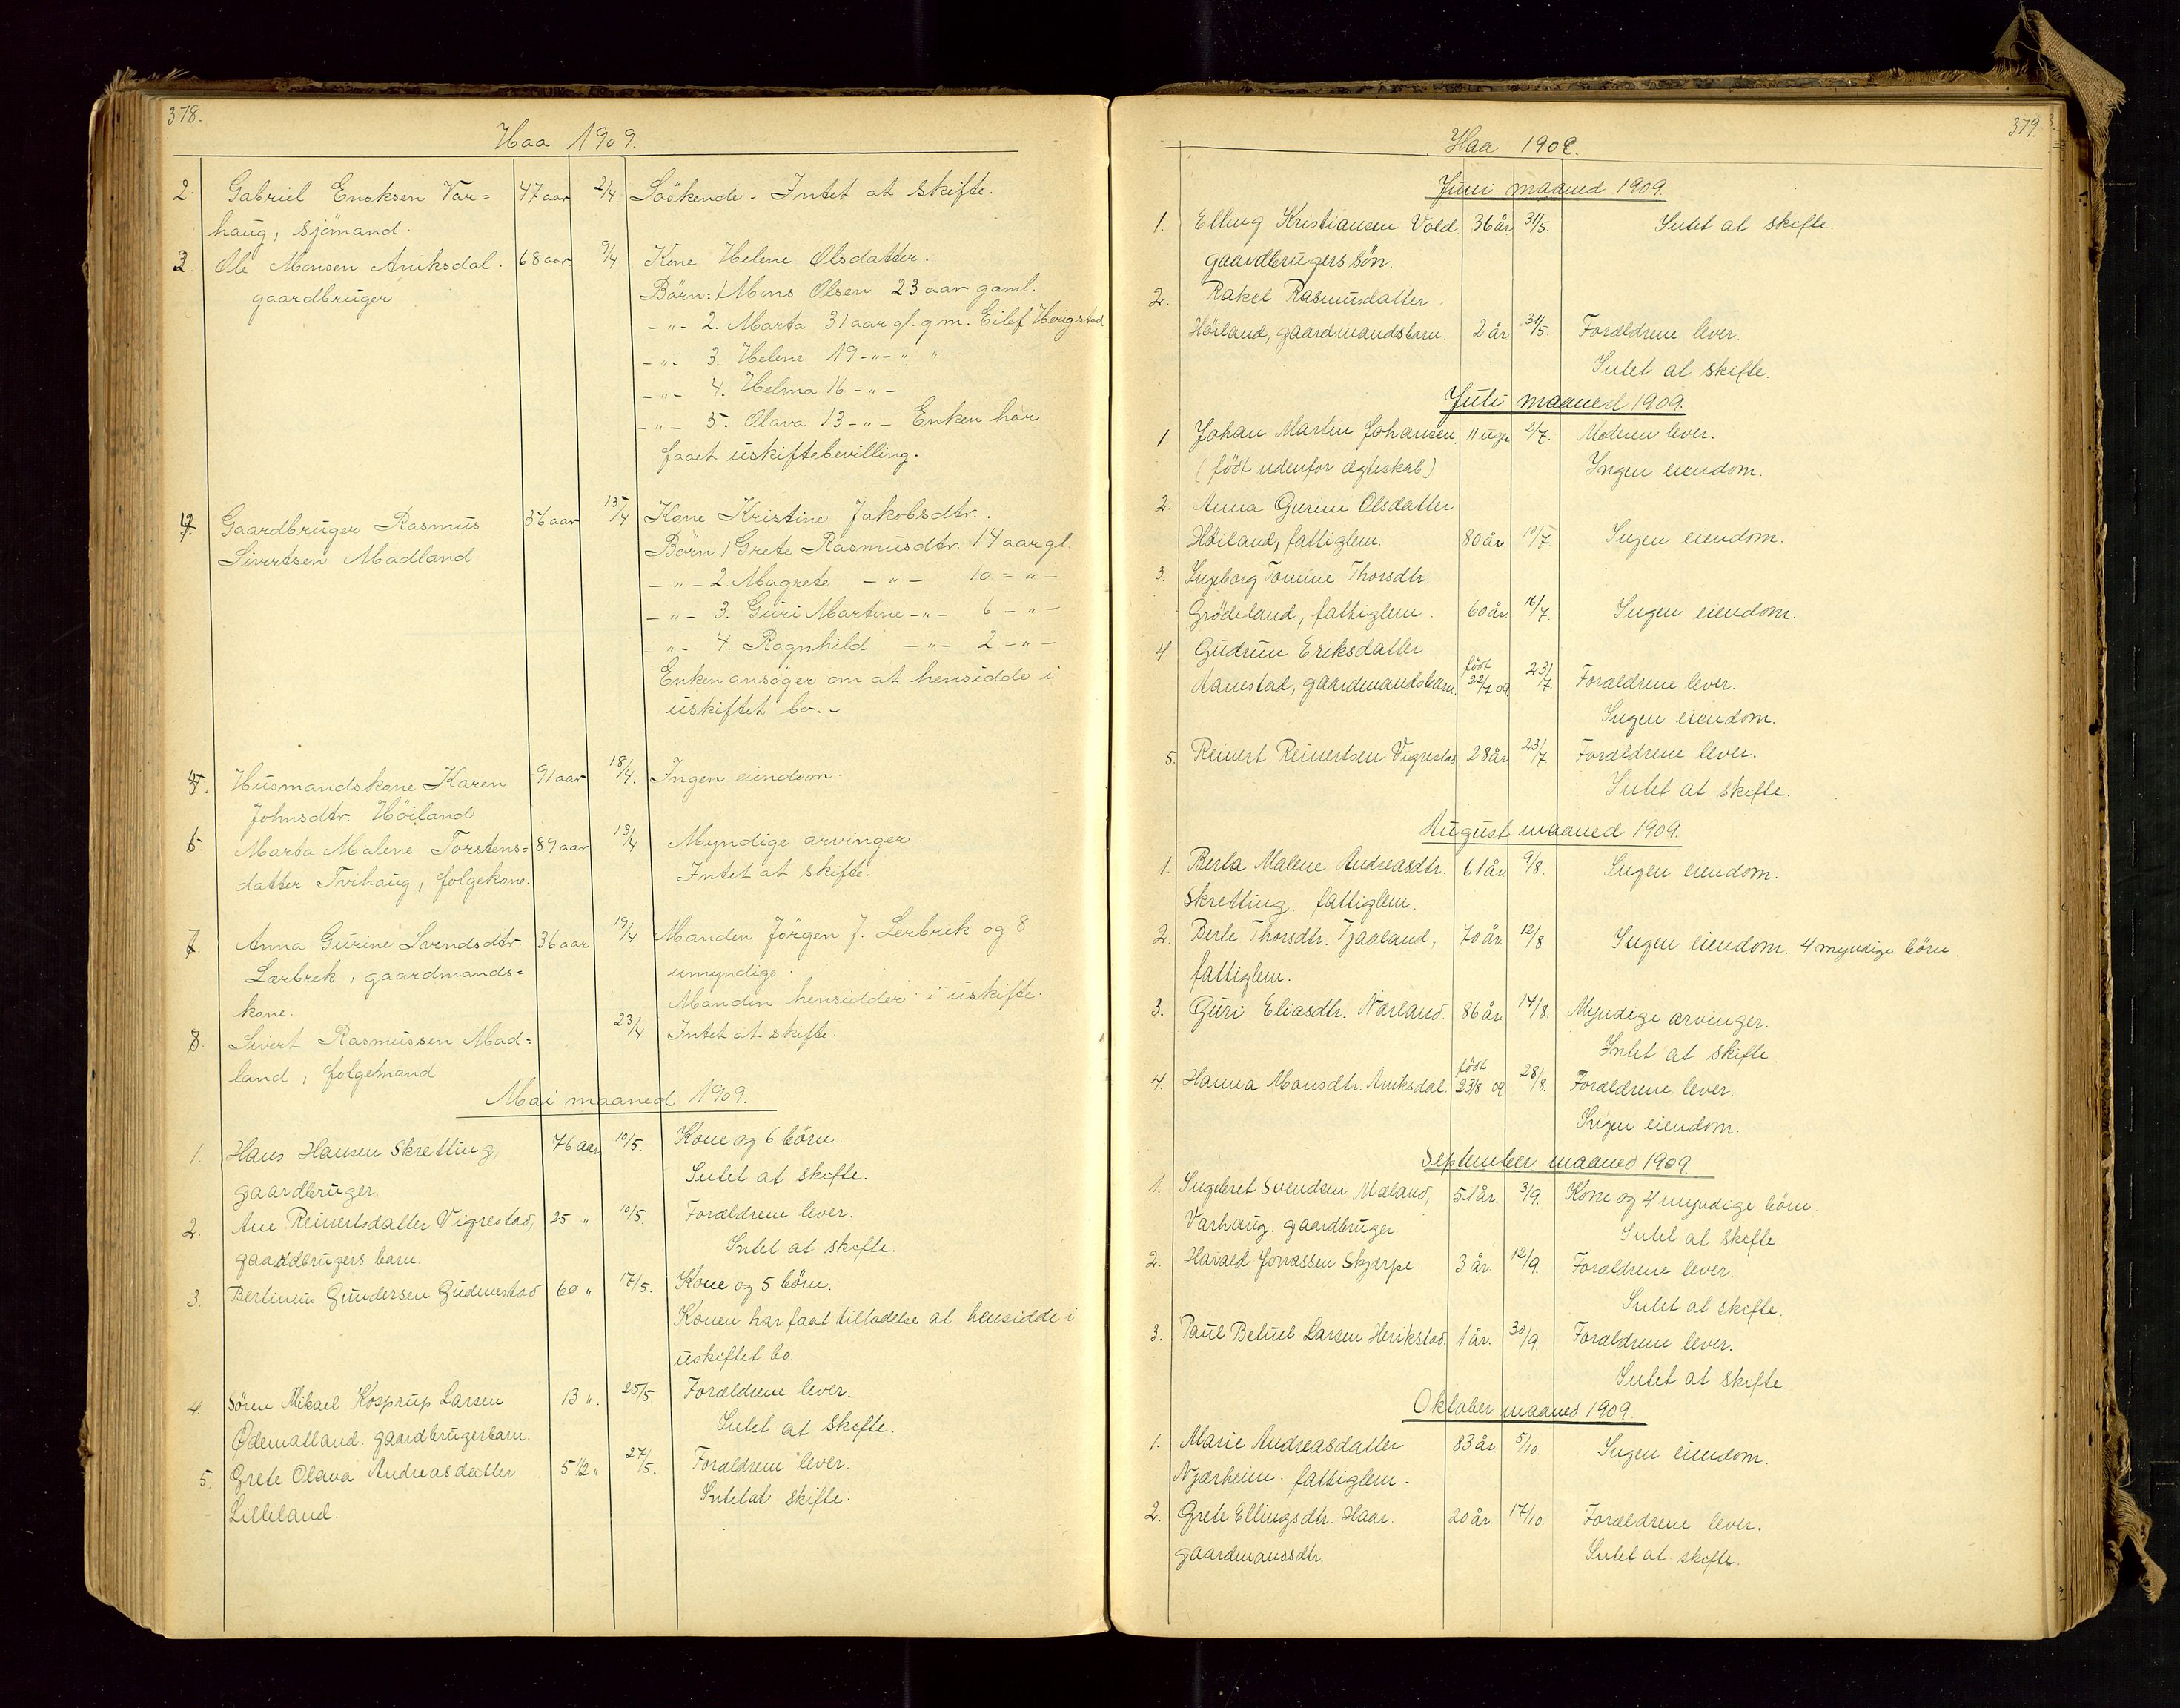 378.
Haa 1909.
2. Gabriel Ericksen Var= 47 aar 2/4. Söskende - Intet at skifte.
haug, sjömand.
3. Ole Monsen Aniksdal. 68 aar. 9/4 Kone Helene Olsdatter.
gaardbruger Börn: 1 Mons Olsen 23 aar gaml.
-"- 2. Marta 31 aar gl. g.m. Eilef Herigstad
-"- 3. Helene 19 -"- " "
-"- 4. Helma 16 -"-
-"- 5. Olava 13 -"- Enken har
faaet uskiftebevilling.
4. Gaardbruger Rasmus 36 aar 15/4 Kone Kristine Jakobsdtr.
Sivertsen Madland Börn 1 Grete Rasmusdtr. 14 aar gl
-"- 2. Magrete -"- 10 = "-
-"- 3. Guri Martine -"- 6 -"-
-"- 4. Ragnhild -"- 2 -"-
Enken ansöger om at hensidde i
uskiftet bo.-
5. Husmandskone Karen 91 aar 18/4. Ingen eiendom.
Johnsdtr. Höiland
6. Marta Malene Torstens= 89 aar 13/4 Myndige arvinger.
datter Tvihaug, folgekone. Intet at skifte.
7. Anna Gurine Svendsdtr 36 aar 19/4 Manden Jörgen J. Lerbrek og 8
Lærbrek, gaardmands= umyndige.
kone. Manden hensidder i uskifte.
8. Sivert Rasmussen Mad= 23/4 Intet at skifte.
land, folgemand
Mai maaned 1909.
1. Hans Hansen Skretting, 76 aar 10/5. Kone og 6 börn.
gaardbruger. Intet at skifte.
2. Ane Reinertsdatter Vigrestad, 25 " 10/5. Forældrene lever.
gaardbrugers barn. Intet at skifte.
3. Bertinius Gundersen Gudmestad 60 " 17/5. Kone og 5 börn.
Konen har faat tilladelse at hensidde i
uskiftet bo.
4. Sören Mikael Larsen 13 ". 25/5. Forældrene lever.
Ødemotland. gaardbrugerbarn. Intet at skifte.
5. Grete Olava Andreasdatter 5 1/2 " 27/5. Forældrene lever.
Lilleland. Intet at skifte.
379.
Haa 1909.
Juni maaned 1909.
1. Elling Kristiansen Vold 36 år 31/5. Intet at skifte.
gaardbrugers sön.
2. Rakel Rasmusdatter
Höiland, gaardmandsbarn. 2 år 31/5. Forældrene lever.
Intet at skifte.
Juli maaned 1909.
1. Johan Martin Johansen, 11 uger 2/7. Moderen lever.
(födt udenfor ægteskab) Ingen eiendom.
2. Anna Gurine Olsdatter
Höiland, fattiglem. 80 år 10/7 Ingen eiendom.
3. Ingeborg Tomine Thorsdtr.
Grödeland, fattiglem. 60 år 16/7. Ingen eiendom.
4. Gudrun Eriksdatter
Aanestad, gaardmandsbarn. födt 22/7 09. 23/7. Forældrene lever.
Ingen eiendom.
5. Reinert Reinertsen Vigrestad 28 år 23/7 Forældrene lever.
Intet at skifte.
August maaned 1909.
1. Berta Malene Andreasdtr. 61 år 9/8. Ingen eiendom.
Skretting. fattiglem.
2. Berte Thorsdtr. Tjaaland, 70 år 12/8 Ingen eiendom. 4 myndige börn.
fattiglem.
3. Guri Eliasdtr. Nærland. 86 år 14/8. Myndige arvinger.
Intet at skifte.
4. Hanna Monsdtr. Aniksdal. födt 23/8 09 28/8. Forældrene lever.
Ingen eiendom.
September maaned 1909.
1. Ingebret Svendsen Mæland, 51 år. 3/9. Kone og 4 myndige börn.
Varhaug. gaardbruger. Intet at skifte.
2. Harald Jonassen Skjærpe. 3 år 12/9. Forældrene lever.
Intet at skifte.
3. Paul Betuel Larsen Herikstad. 1 år. 30/9. Forældrene lever.
Intet at skifte.
Oktober maaned 1909.
1. Marie Andreasdatter 83 år. 5/10. Ingen eiendom.
Njærheim. fattiglem.
2. Grete Ellingsdtr. Haar. 20 år. 17/10. Forældrene lever.
gaardmanssdtr. Intet at skifte.